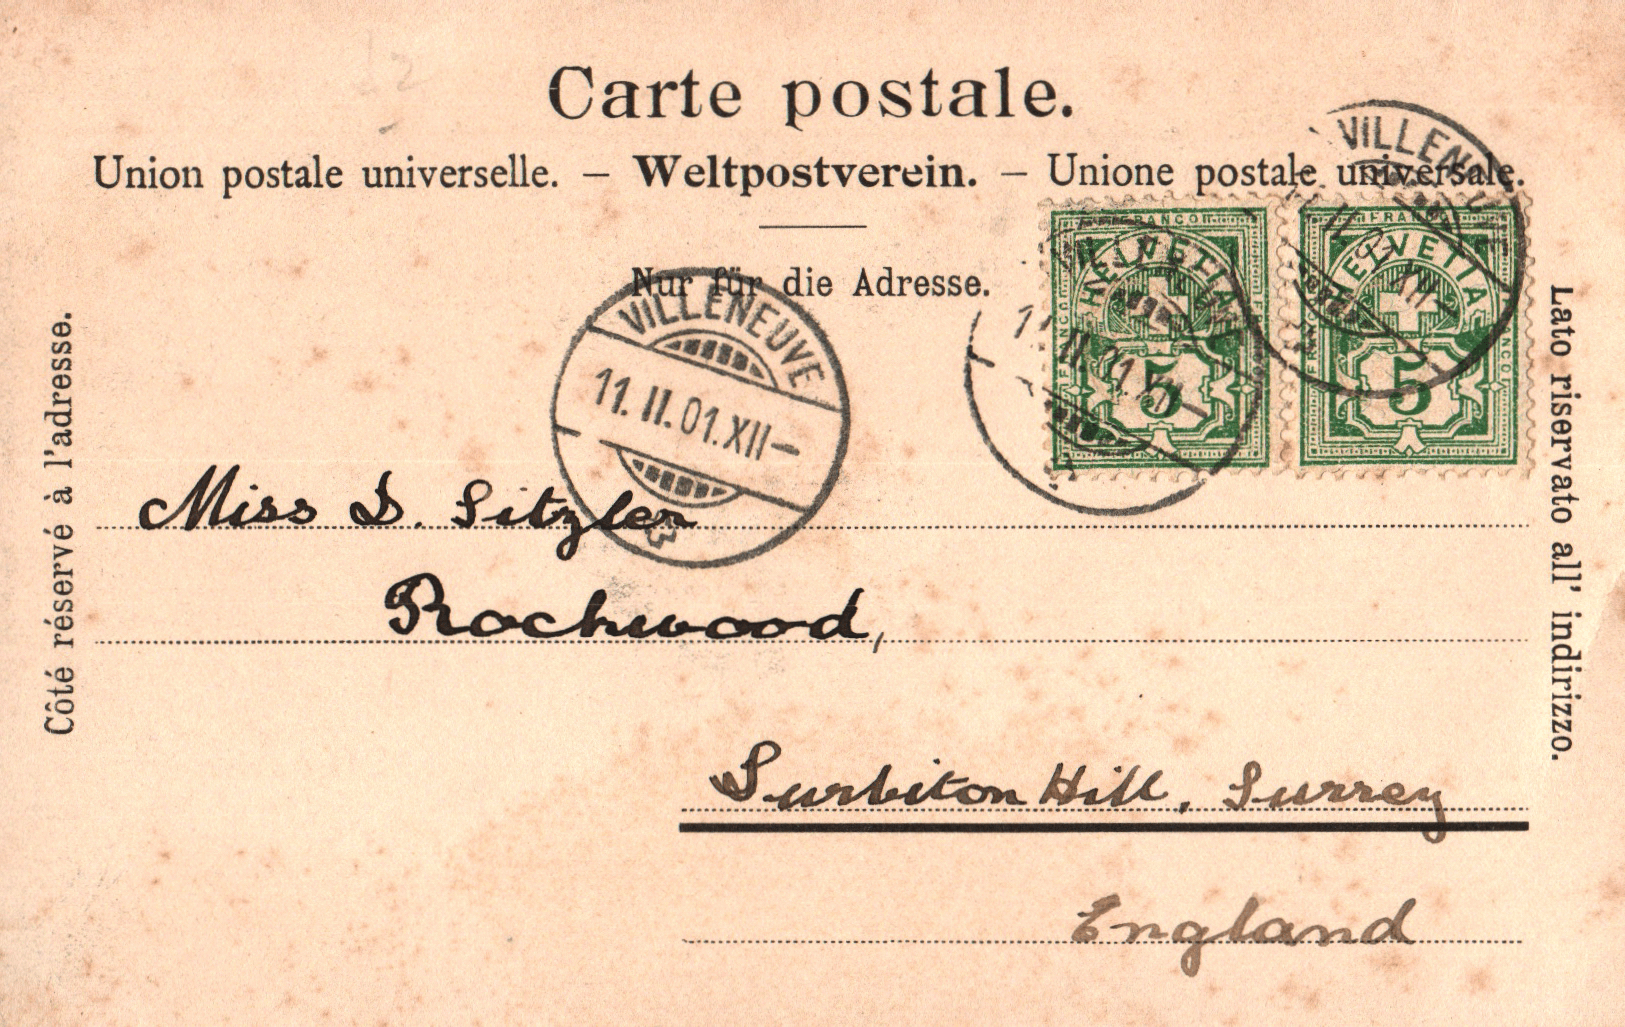 Carte postale.
Union postale universelle. — Weltpostverein. — Unione postale universale.
Nur für die Adresse.
Côté réservé à l'adresse.
Lato riservato all' indirizzo.
FRANCO
HELVETIA
5
FRANCO
HELVETIA
5
VILLENEUVE
11.II.01.XII–
VILLENEUVE
11.II.01.XII–
VILLENEUVE
II XII–
Miss D. Sitzler
Rockwood,
Surbiton Hill, Surrey
England